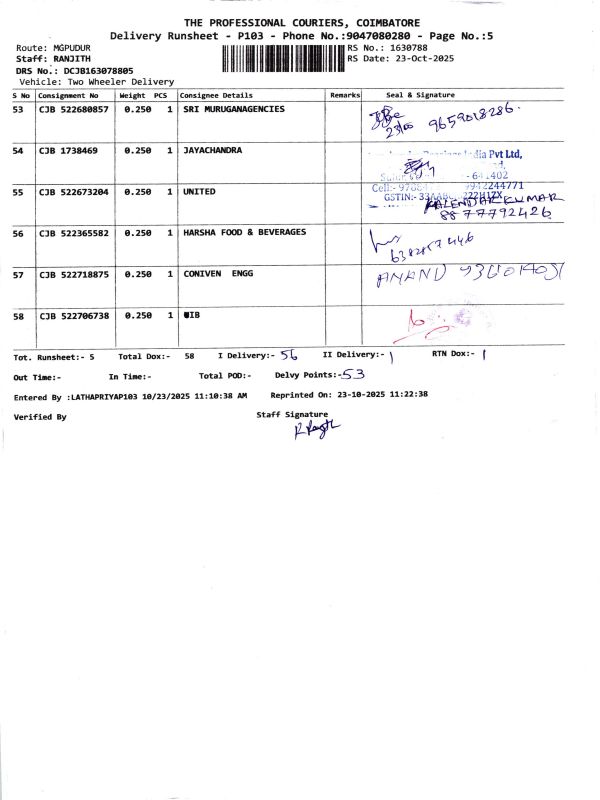 THE PROFESSIONAL COURIERS, COIMBATORE
Delivery Runsheet - P103 - Phone No.:9047080280 - Page No.:5
Route: MGPUDUR RS No.: 1630788
Staff: RANJITH RS Date: 23-Oct-2025
DRS No.: DCJB163078805
Vehicle: Two Wheeler Delivery
S No Consignment No Weight PCS Consignee Details Remarks Seal & Signature
53 CJB 522680857 0.250 1 SRI MURUGANAGENCIES 9659018286.
54 CJB 1738469 0.250 1 JAYACHANDRA
dia Pvt Ltd,
55 CJB 522673204 0.250 1 UNITED
9942244771
GSTIN:-
KALENDAR KUMAR
8877792426
56 CJB 522365582 0.250 1 HARSHA FOOD & BEVERAGES
57 CJB 522718875 0.250 1 CONIVEN ENGG ANAND
58 CJB 522706738 0.250 1 UIB
Tot. Runsheet:- 5 Total Dox:- 58 I Delivery:- 56 II Delivery:- 1 RTN Dox:- 1
Out Time:- In Time:- Total POD:- Delvy Points:- 53
Entered By :LATHAPRIYAP103 10/23/2025 11:10:38 AM Reprinted On: 23-10-2025 11:22:38
Verified By Staff Signature